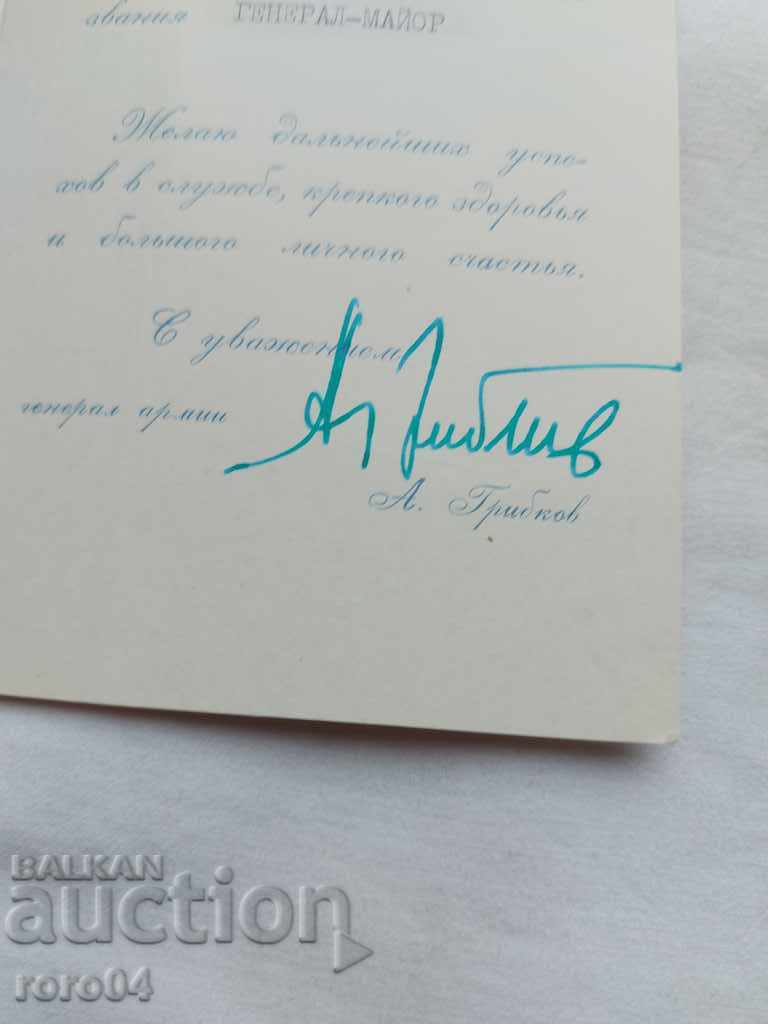 звания ГЕНЕРАЛ-МАЙОР
Желаю дальнейших успе-
хов в службе, крепкого здоровья
и большого личного счастья.
С уважением
генерал армии А. Грибков
А. Грибков
BALKAN
auction
roro04